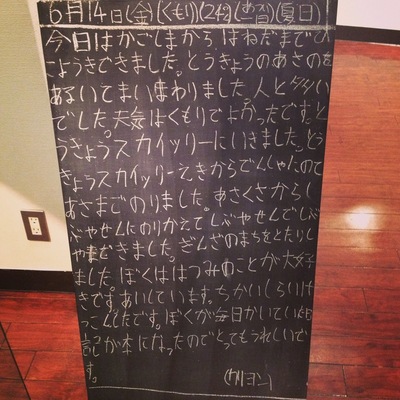 6月14日(金)(くもり)(24才)(お昼)(夏日)
今日はかごしまから、はねだまでひ
こようきできました。とうきょうのあさのを
あるいてまいまわりました。人と多い
でした。天気はくもりでよかったです。と
うきょうスカイッリーにいきました。とう
きょうスカイッリーえきからでんしゃにのて
あさまでのりました。あさくさからし
ぶやせんにのりかえてしぶやせんでしぶ
やまできました。ぎんざのまちをとたりし
ました。ぼくははつみのことが大好
きです。あいしています。ちかいしらいけ
っこんしたです。ぼくが毎日かいていた日
記が本になったのでとってもうれしいで
す。
(クリヨン)